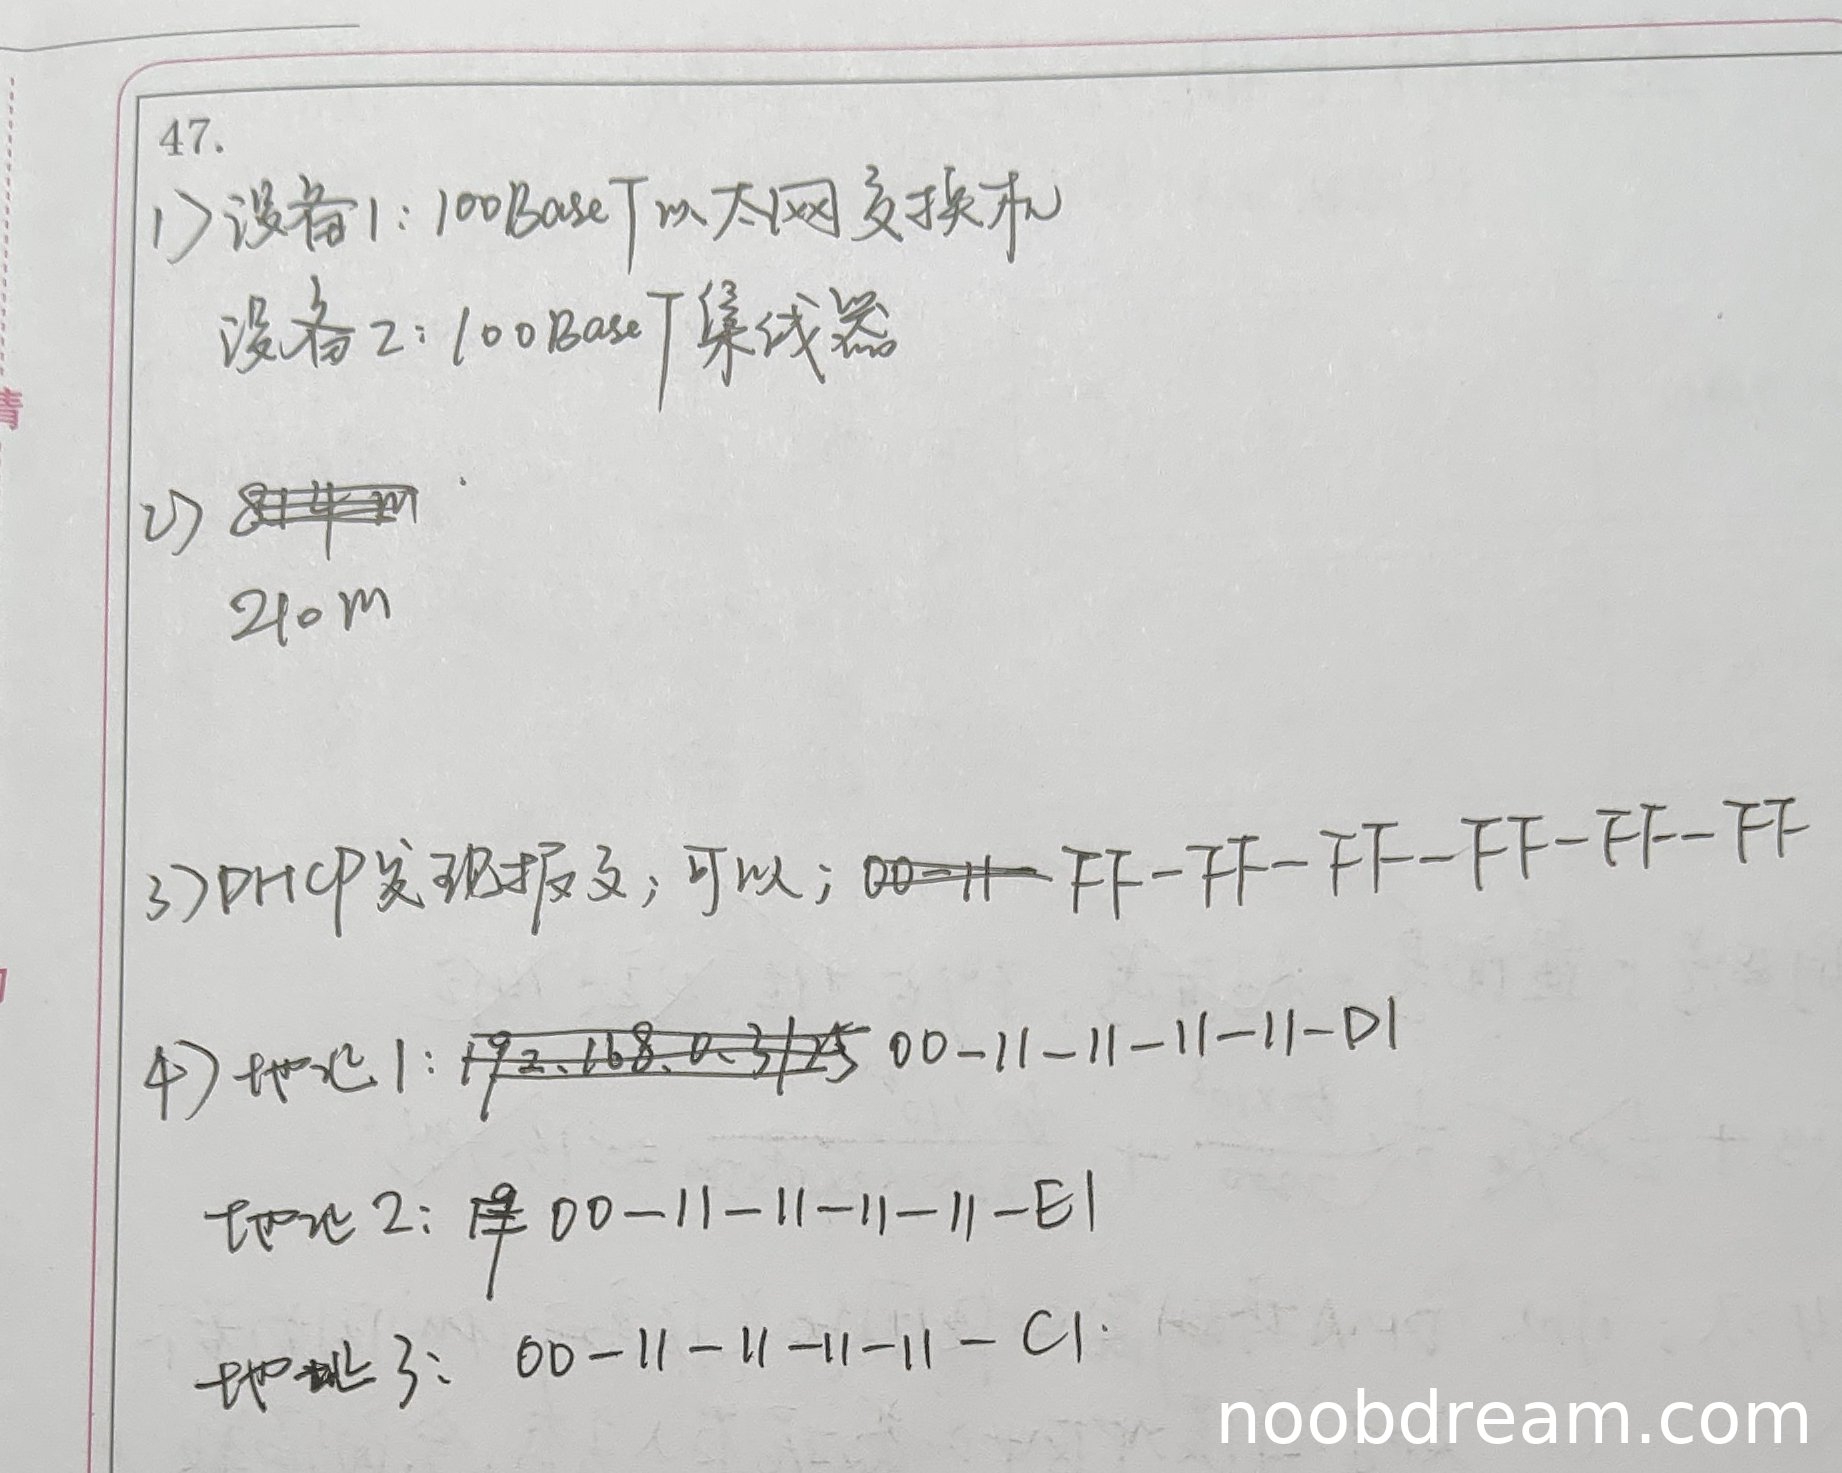 47.
1) 设备1: 100BaseT以太网交换机
设备2: 100BaseT集线器
2) 814m
210m
3) DHCP发现报文; 可以; 00-11- FF-FF-FF-FF-FF-FF
4) 地址1: 192.168.0.3/25 00-11-11-11-11-D1
地址2: 00-11-11-11-11-E1
地址3: 00-11-11-11-11-C1.
情
noobdream.com